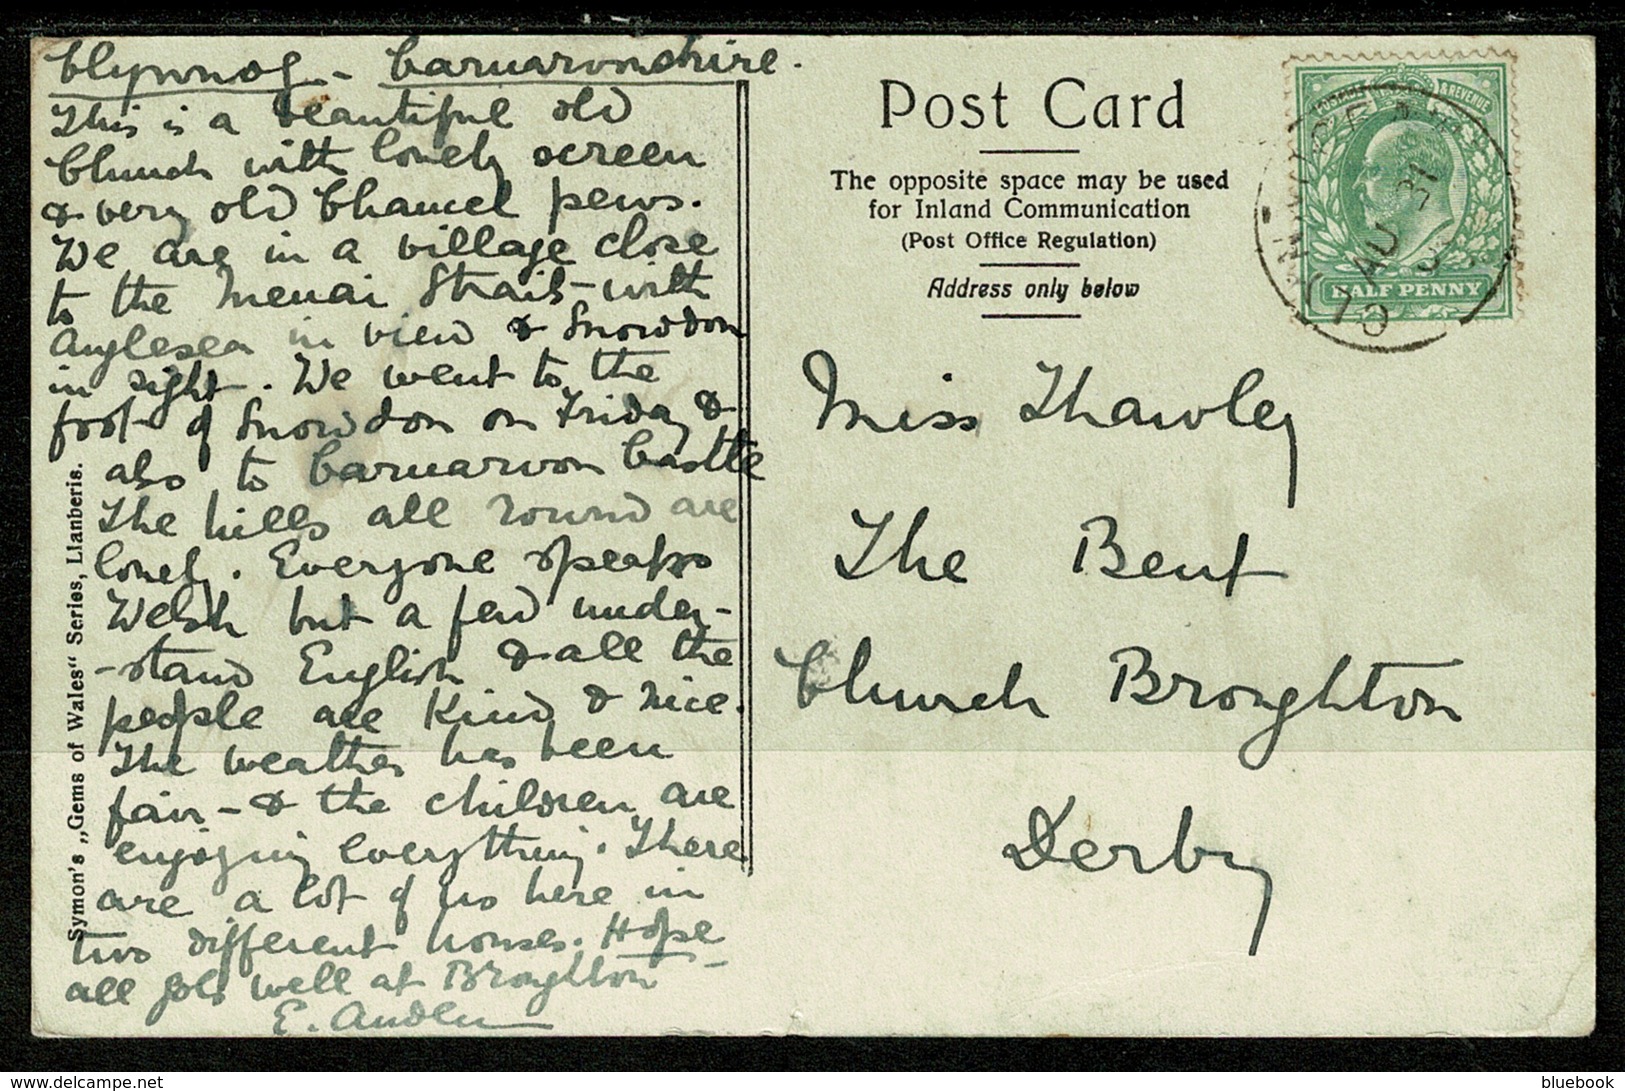 Clynnog - Carnarvonshire.
This is a beautiful old
Church with lovely screen
& very old Chancel pews.
We are in a village close
to the Menai Strait - with
Anglesea in view & Snowdon
in sight. We went to the
foot of Snowdon on Friday &
also to Carnarvon Castle
The hills all round are
lovely. Everyone speaks
Welsh but a few under-
-stand English & all the
people are kind & nice.
The weather has been
fair - & the children are
enjoying everything. There
are a lot of us here in
two different houses. Hope
all goes well at Broughton
E.
Symon's „Gems of Wales" Series, Llanberis.
Post Card
The opposite space may be used
for Inland Communication
(Post Office Regulation)
Address only below
POSTAGE & REVENUE
HALF PENNY
AU 31
Miss Thawley
The Bent
Church Broughton
Derby
delcampe.net
bluebook